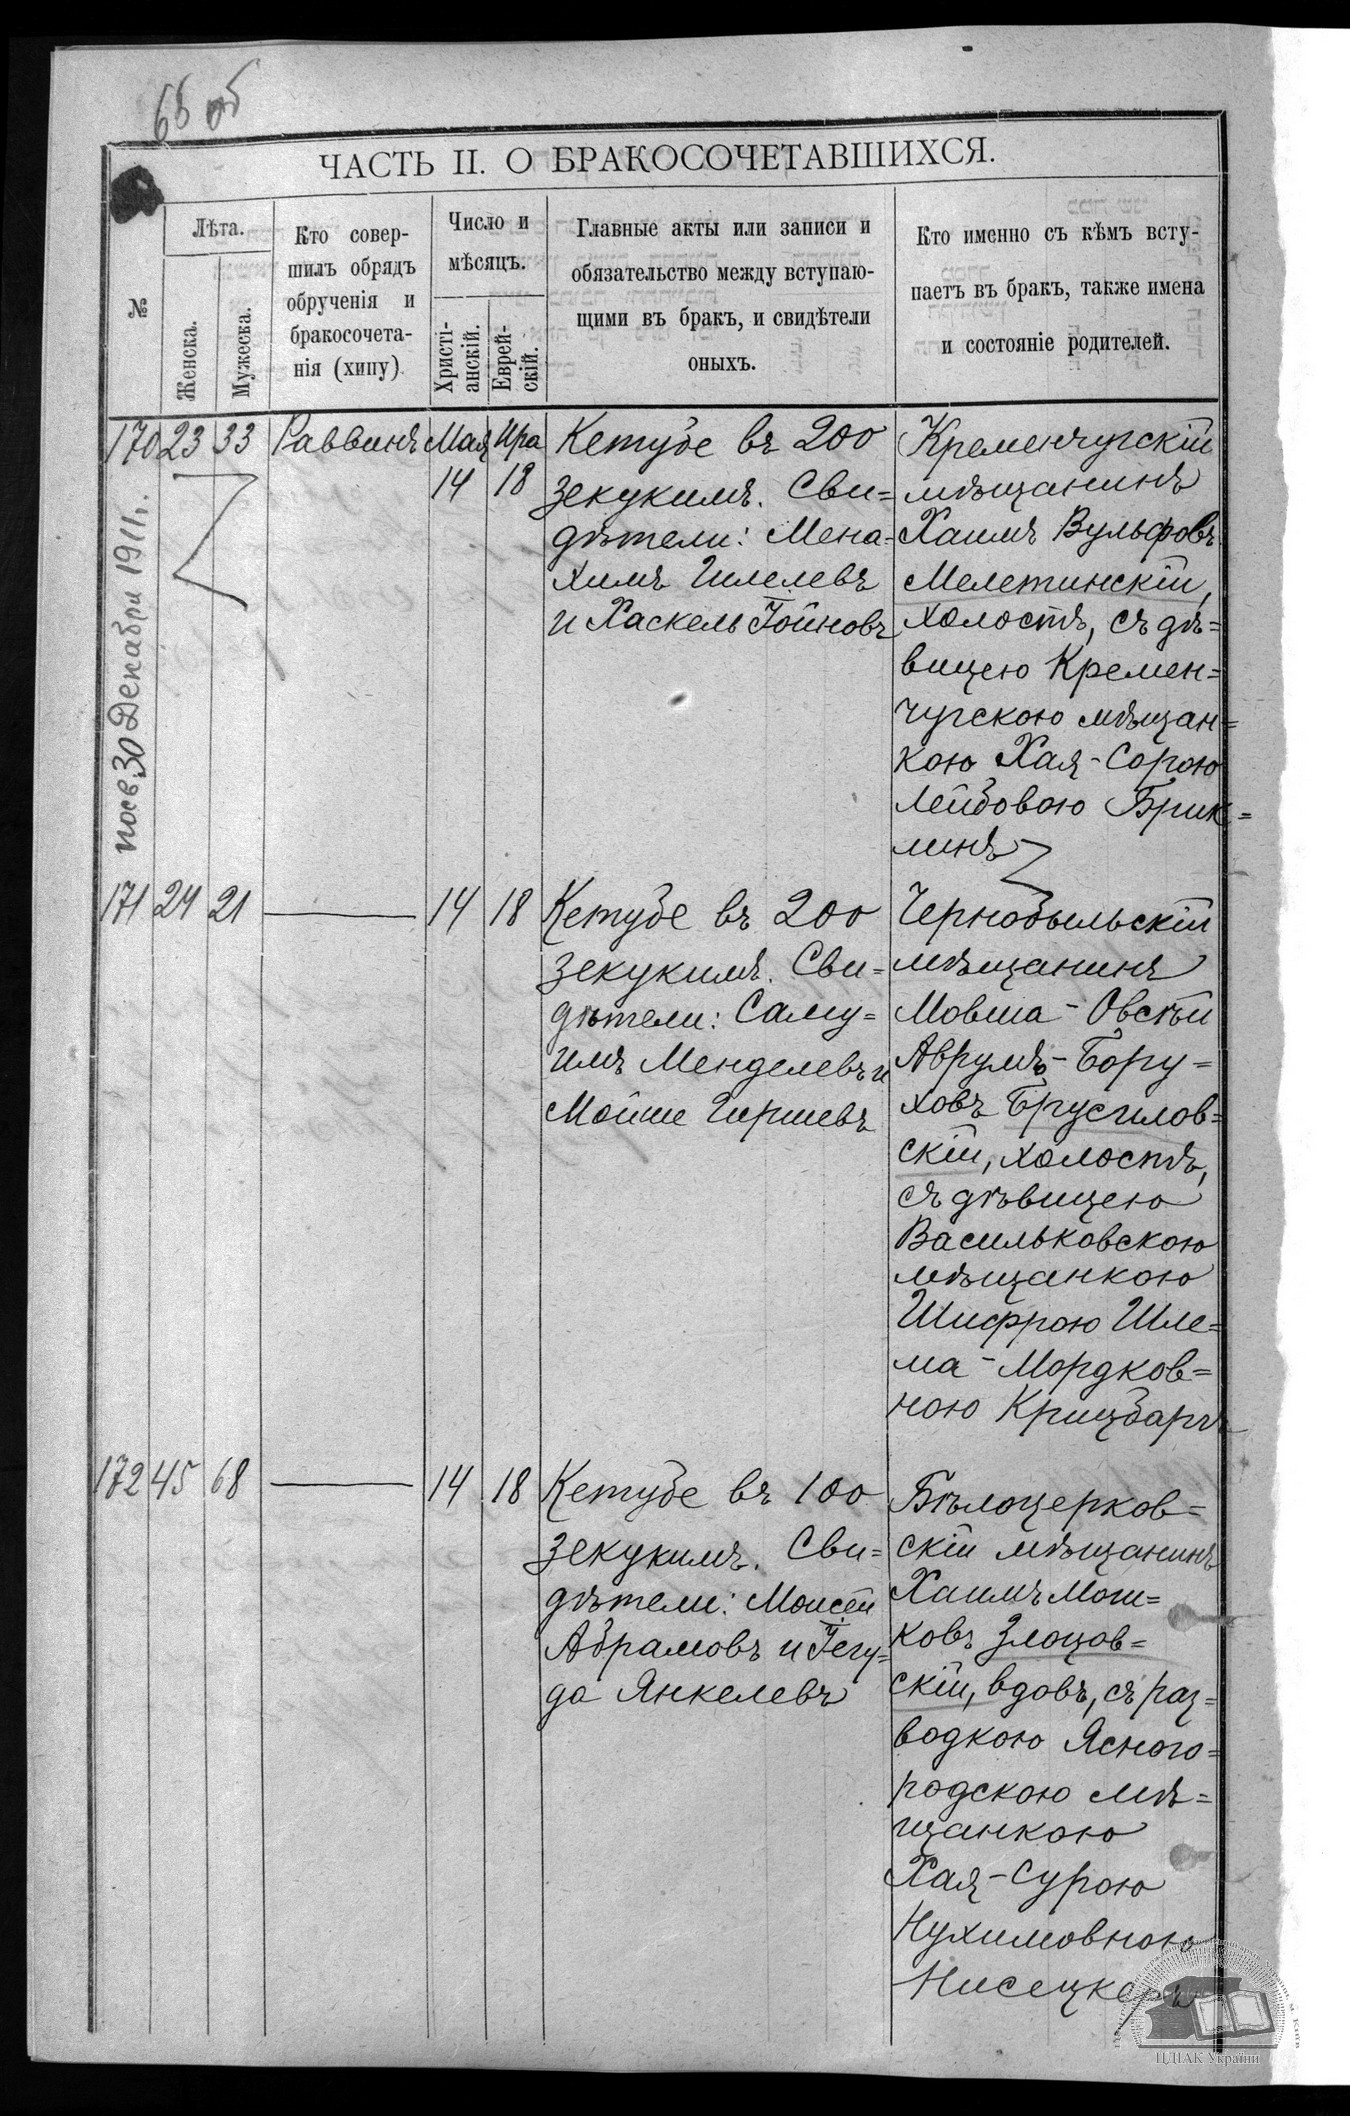 68 об
ЧАСТЬ II. О БРАКОСОЧЕТАВШИХСЯ.
№
Лѣта.
Женска.
Мужеска.
Кто совер-
шилъ обрядъ
обрученія и
бракосочета-
нія (хипу)
Число и
мѣсяцъ.
Христі-
анскій.
Еврей-
скій.
Главные акты или записи и
обязательство между вступаю-
щими въ бракъ, и свидѣтели
оныхъ.
Кто именно съ кѣмъ всту-
паетъ въ бракъ, также имена
и состояніе родителей.
170 23 33 Раввинъ Мая Ира
14 18
Кетубе въ 200
зекукимъ. Сви=
дѣтели: Мена=
химъ Гилелевъ
и Хаскель Гойновъ
Кременчугскій
мѣщанинъ
Хаимъ Вульфовъ
Мелетинскій,
холостъ, съ дѣ=
вицею Кремен=
чугскою мѣщан=
кою Хая-Сорою
Лейбовою Брик=
линъ
пов. 30 Декабри 1911 г.
171 24 21 14 18
Кетубе въ 200
зекукимъ. Сви=
дѣтели: Саму=
илъ Менделевъ и
Мойше Гершевъ
Чернобыльскій
мѣщанинъ
Мовша-Овсѣй
Аврумъ-Бору=
ховъ Брусилов=
скій, холостъ,
съ дѣвицею
Васильковскою
мѣщанкою
Шифрою Шле=
ма-Мордков=
ною Крицбаръ
172 45 68 14 18
Кетубе въ 100
зекукимъ. Сви=
дѣтели: Моисей
Абрамовъ и Іегу=
да Янкелевъ
Бѣлоцерков=
скій мѣщанинъ
Хаимъ Мош=
ковъ Злоцов=
скій, вдовъ, съ раз=
водкою Ясного=
родскою мѣ=
щанкою
Хая-Сурою
Нухимовною
Нисецкеръ
ЦДІАК України